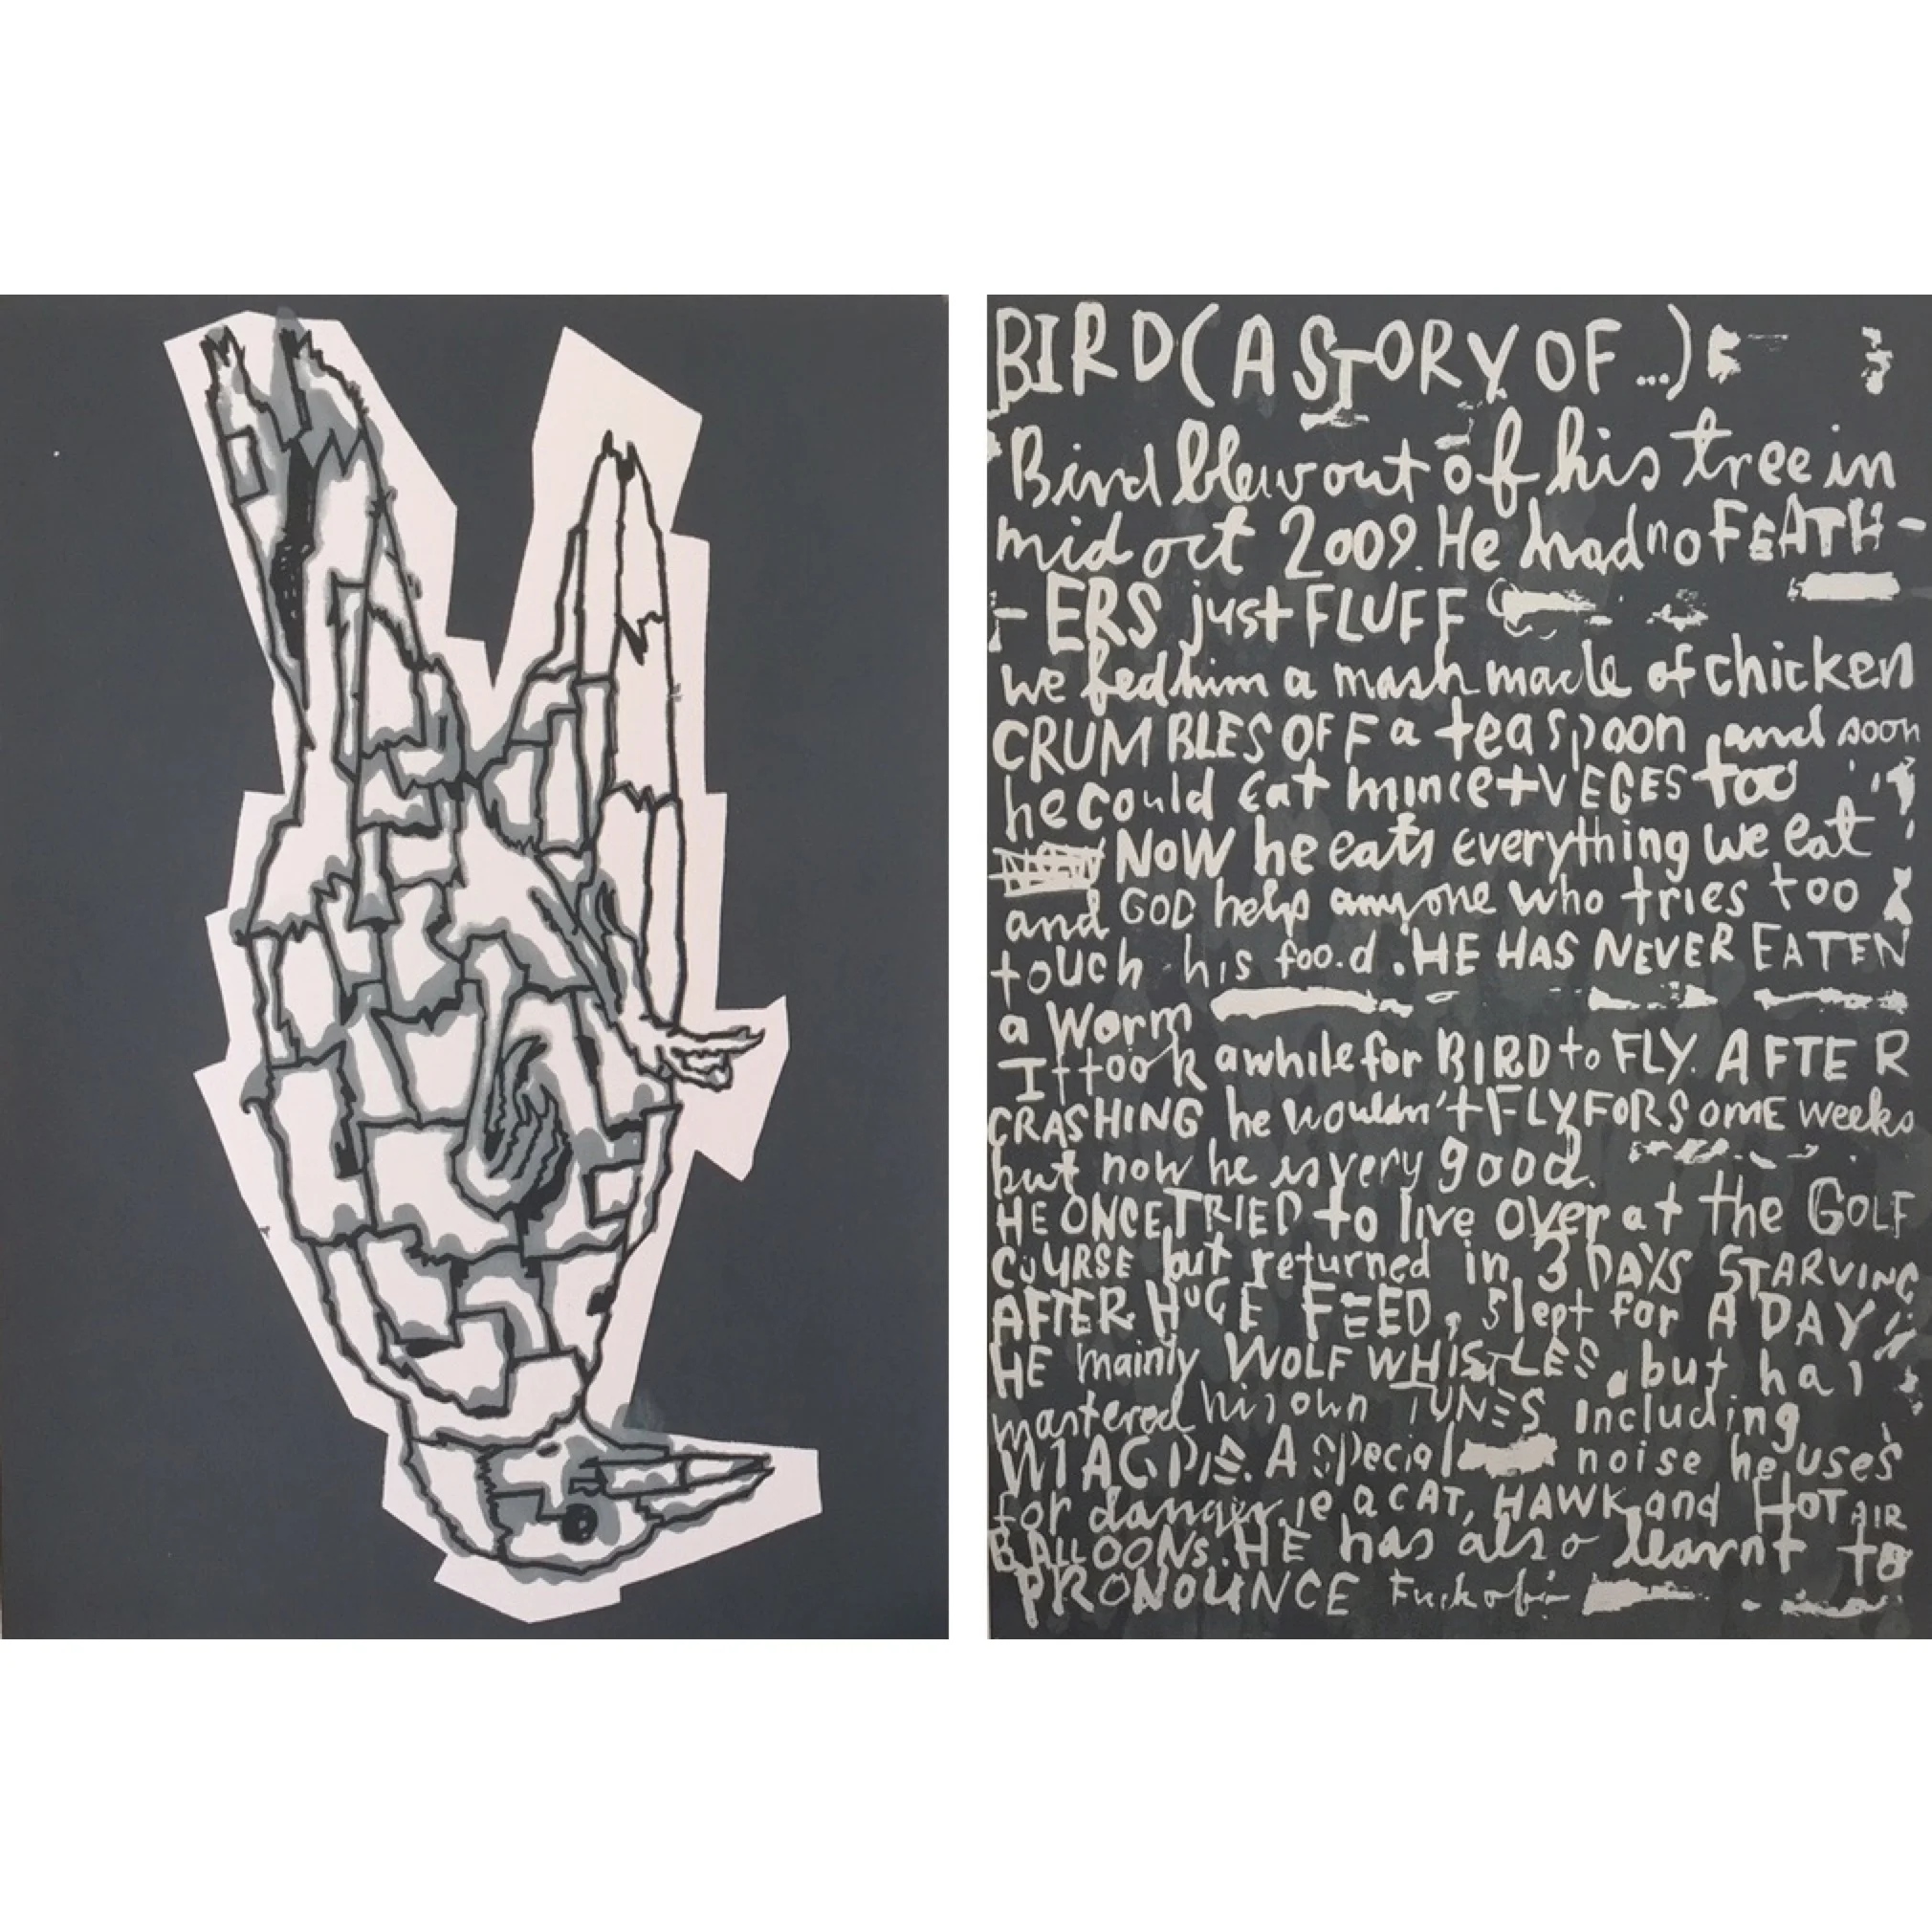 BIRD (A STORY OF ...)
Bird blew out of his tree in
mid oct 2009. He had no FEATH-
-ERS just FLUFF
we fed him a mash made of chicken
CRUMBLES OFF a teaspoon, and soon
he could eat mince + VEGES too
NOW he eats everything we eat
and GOD help anyone who tries too
touch his food. HE HAS NEVER EATEN
a worm
It took a while for BIRD to FLY. AFTER
CRASHING he wouldn't FLY FOR SOME weeks
but now he is very good.
HE ONCE TRIED to live over at the GOLF
COURSE but returned in 3 DAYS STARVING
AFTER HUGE FEED, slept for A DAY
HE mainly WOLF WHISTLES, but has
mastered his own TUNES including
MAGPIE. A special noise he uses
for danger. ie a CAT, HAWK and HOT AIR
BALLOONS. HE has also learnt to
PRONOUNCE Fuck